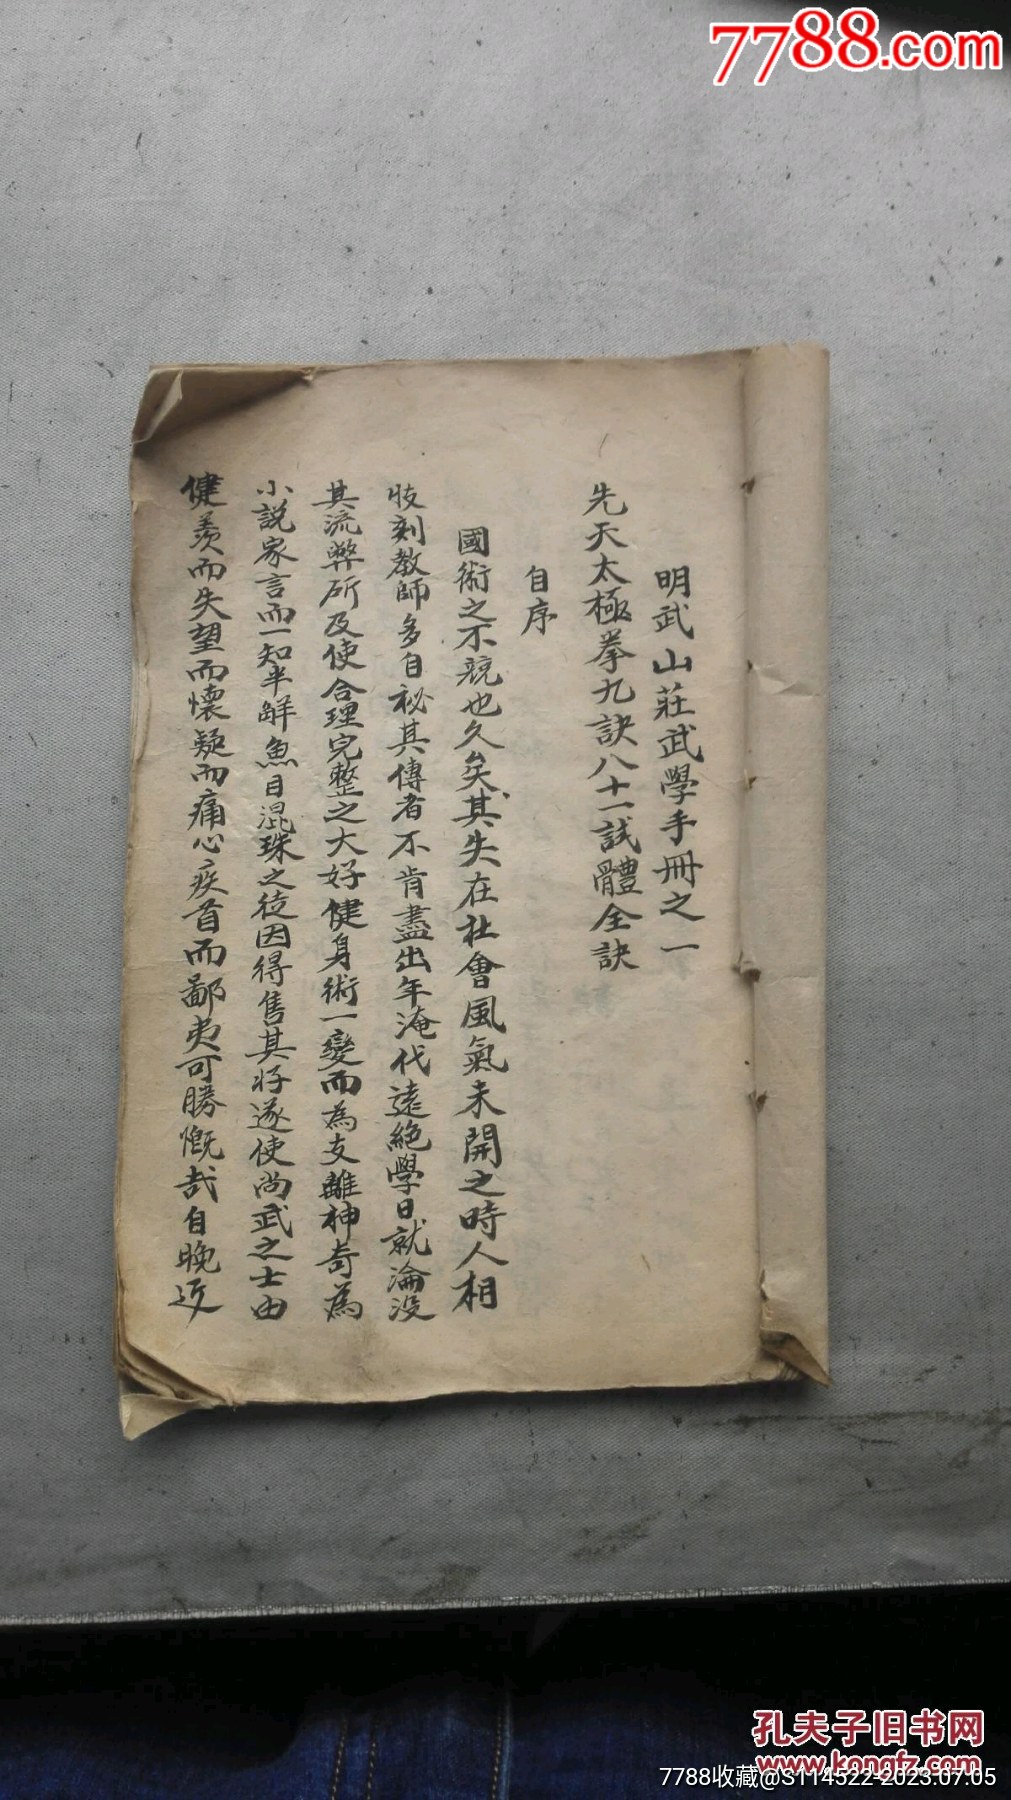 7788.com
明武山莊武學手冊之一
先天太極拳九訣八十一試體全訣
自序
國術之不競也久矣其失在社會風氣未開之時人相
忮刻教師多自祕其傳者不肯盡出年淹代遠絕學日就淪沒
其流弊所及使合理完整之大好健身術一變而為支離神奇為
小說家言而一知半解魚目混珠之徒因得售其將遂使尚武之士由
健羨而失望而懷疑而痛心疾首而鄙夷可勝慨哉自晚近
孔夫子旧书网
www.kongfz.com
7788收藏@S114522-2023.07.05